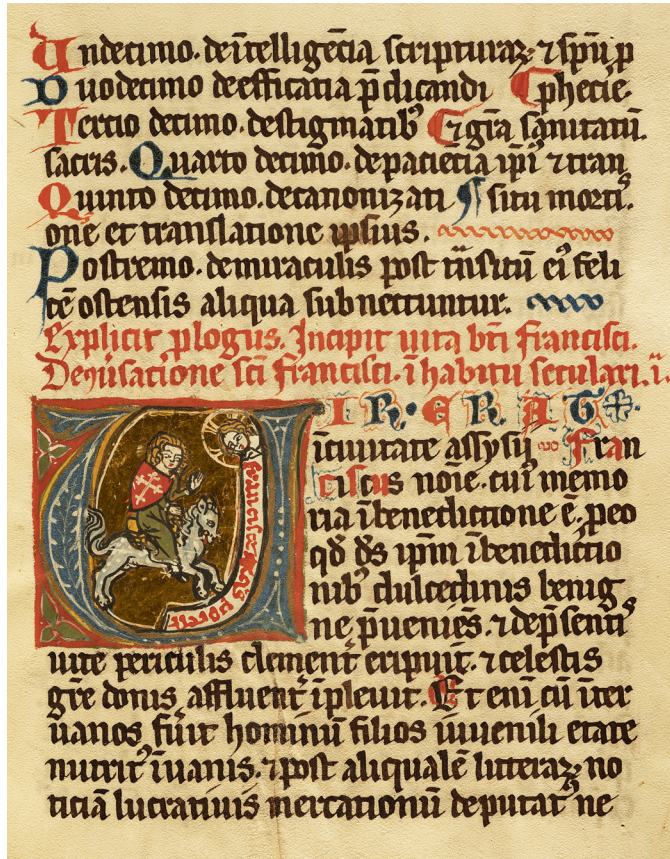 Undecimo. de ītelligēcia scripturaꝝ ⁊ spū p
Duodecimo de efficatia p̄dicandi ¶ phecie.
Tercio decimo. de stigmatibꝰ ¶ ⁊ gr̄a sanitatū.
sacris. Quarto decimo. de paciētia ip̄i ⁊ tran
Quinto decimo. de canonizati ¶ situ morti.
one et translatione ipsius.
Postremo. de miraculis post trāsitū eiꝰ feli
cē ostensis aliqua subnectuntur.
Explicit plogus. Incipit uita bti francisci.
De ꝯuersatione sci francisci. ī habitu seculari. i.
VIR ERAT
ī ciuitate assysij Fran
ciscus noīe. cuiꝰ memo
ria ī benedictione ē. peo
qđ ds ipm ī benedictio
nibꝰ dulcedinis benig
ne p̄ueniēs. ⁊ de p̄senti
uite periculis clement eripuit. ⁊ celestis
gr̄e donis affluent īpleuit. Et eni cū īter
uanos fu͛it hominū filios iuuenili etate
nutritꝰ ī uanis. ⁊ post aliqualē litteraꝝ no
ticiā lucratiuis mercationū deputat ne
franciscꝰ